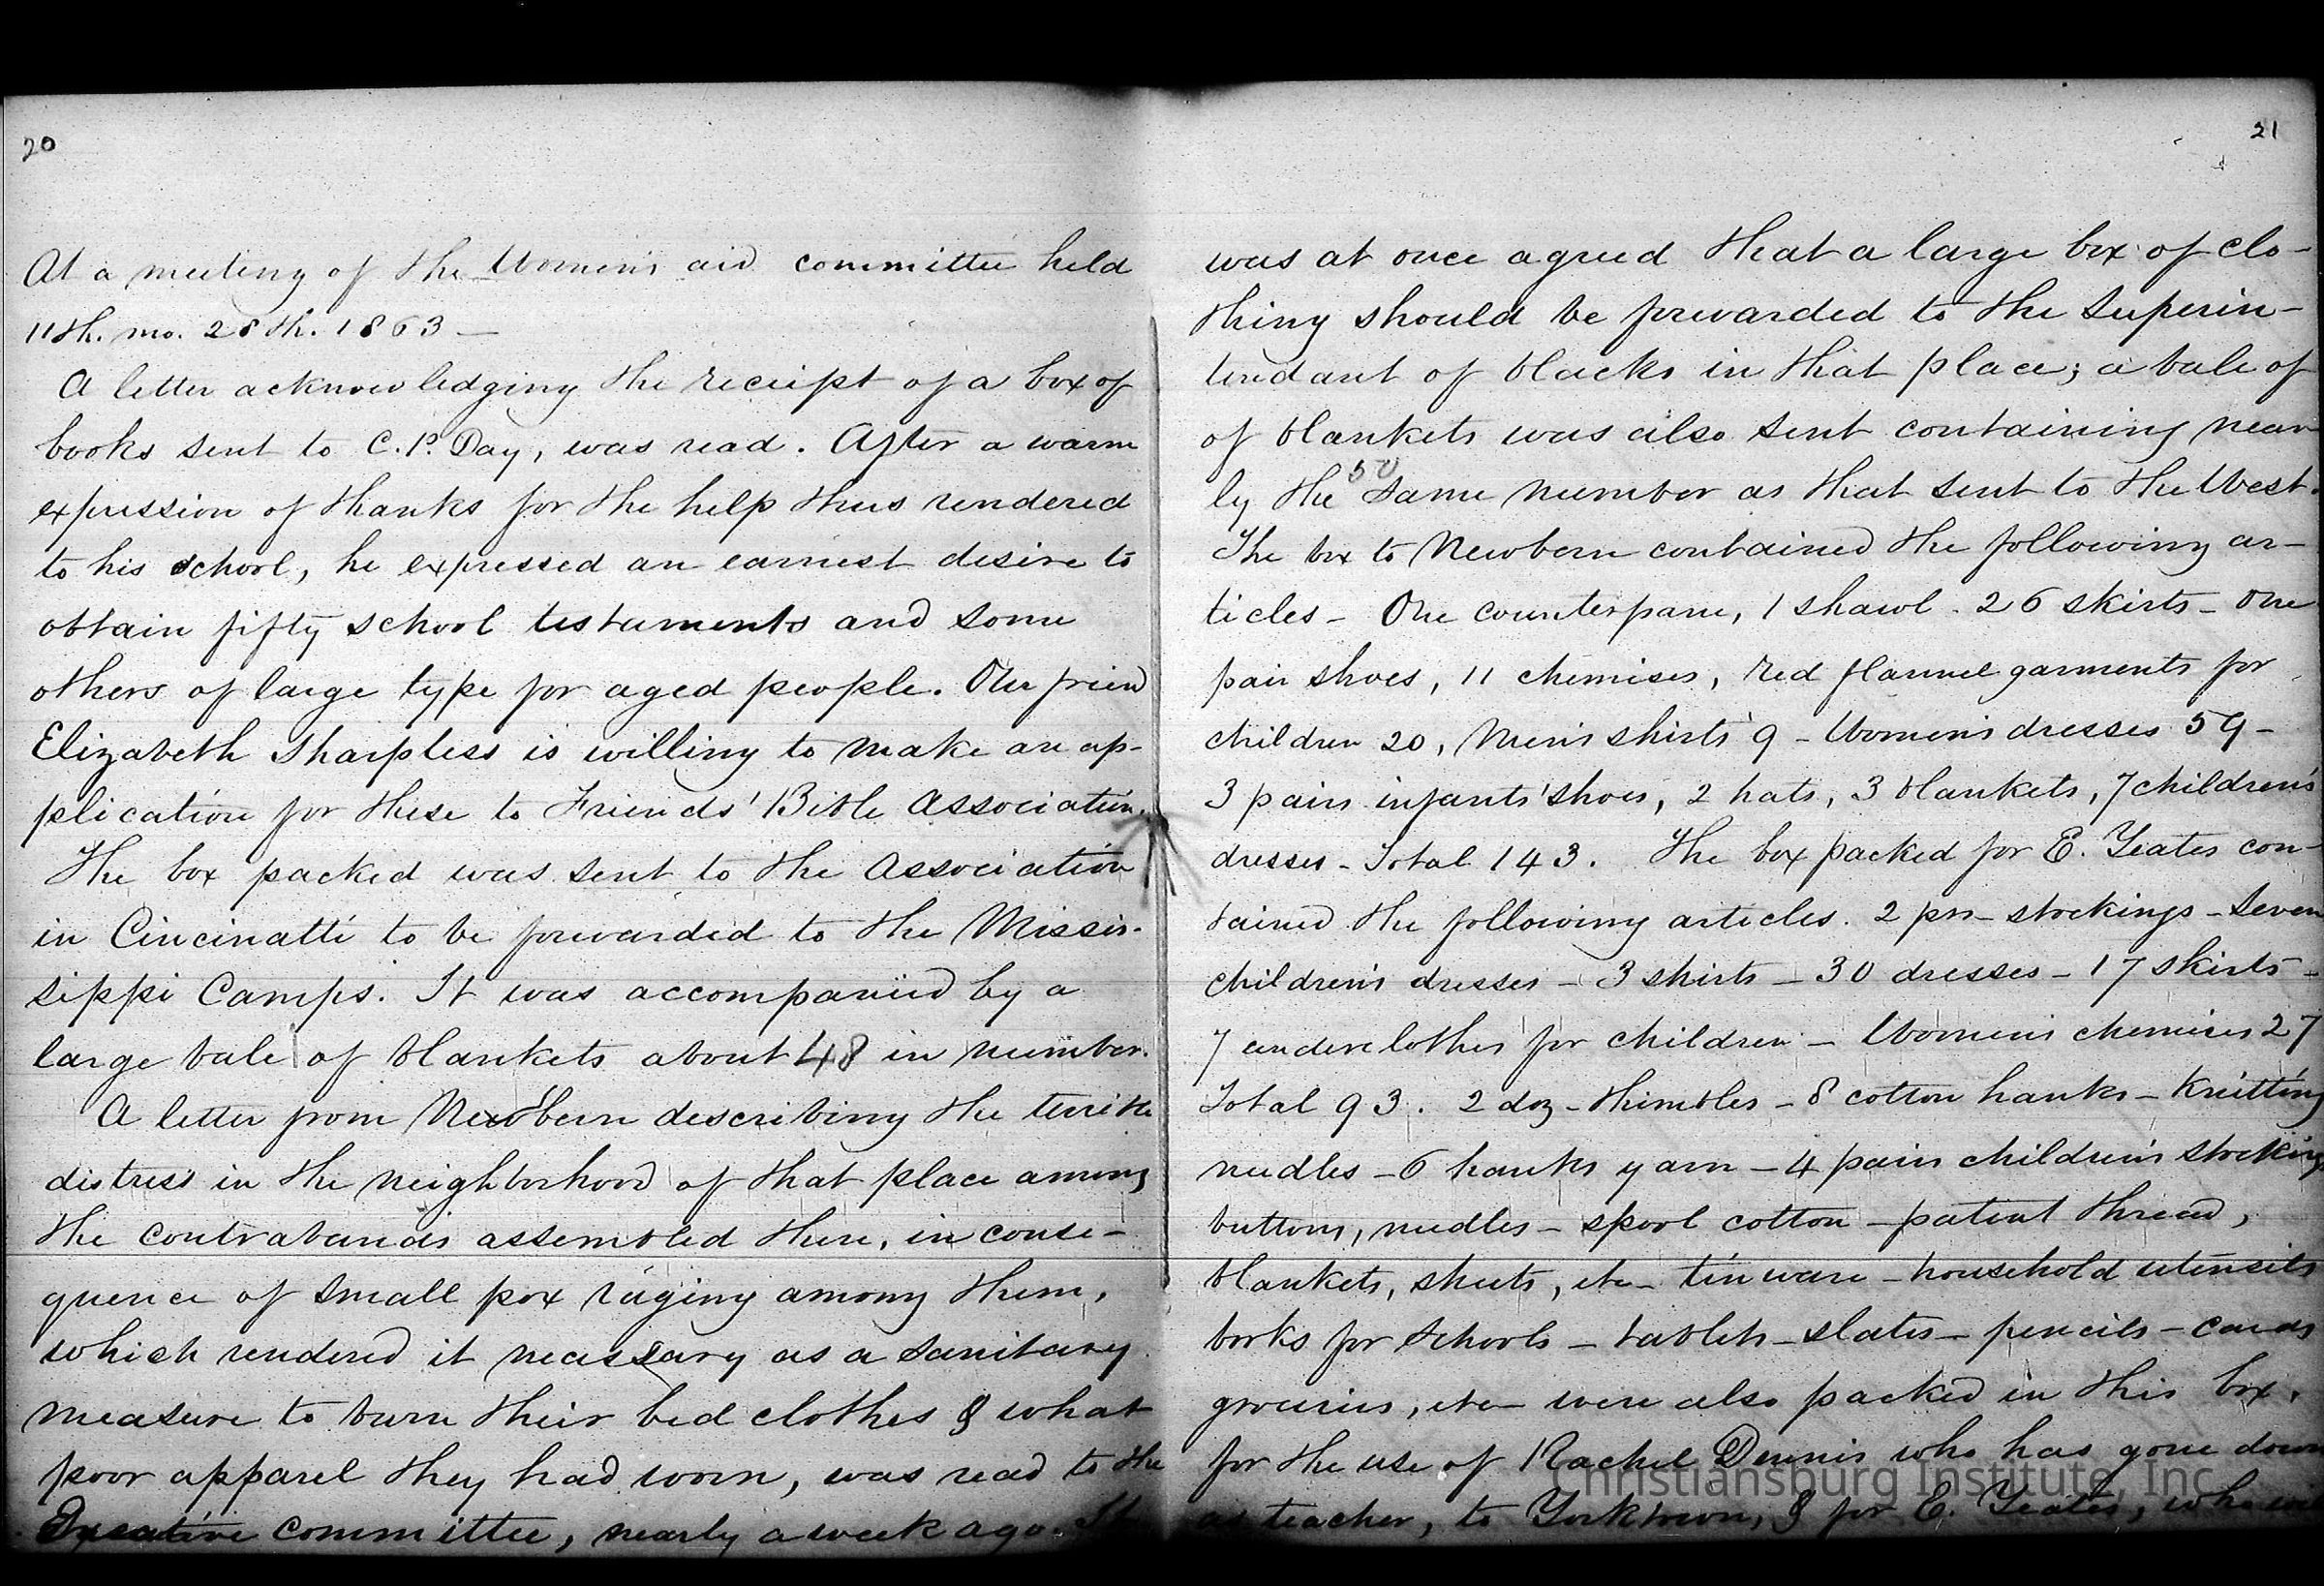 20
At a meeting of the Women's aid committee held
11th. mo. 28th. 1863 —
A letter acknowledging the receipt of a box of
books sent to C. P. Day, was read. After a warm
expression of thanks for the help thus rendered
to his school, he expressed an earnest desire to
obtain fifty school testaments and some
others of large type for aged people. Our friend
Elizabeth Sharpless is willing to make an ap-
plication for these to Friends' Bible Association.
The box packed was sent to the Association
in Cincinatti to be forwarded to the Missis-
sippi Camps. It was accompanied by a
large bale of blankets about 48 in number.
A letter from Newbern describing the terrible
distress in the neighborhood of that place among
the contrabands assembled there, in conse-
quence of small pox raging among them,
which rendered it necessary as a sanitary
measure to burn their bed clothes & what
poor apparel they had worn, was read to the
Executive committee, nearly a week ago. It
21
was at once agreed that a large box of clo-
thing should be forwarded to the Superin-
tendant of blacks in that place; a bale of
of blankets was also sent containing near-
50
ly the same number as that sent to the West.
The box to Newbern contained the following ar-
ticles - One counterpane, 1 shawl. 26 skirts - one
pair shoes, 11 chemises, red flannel garments for
children 20, Men's shirts 9 - Women's dresses 59 -
3 pairs infants' shoes, 2 hats, 3 blankets, 7 children's
dresses - Total 143. The box packed for E. Yeates con-
tained the following articles. 2 prs - stockings - Seven
children's dresses - 3 shirts - 30 dresses - 17 skirts -
7 underclothes for children - Women's chemises 27
Total 93. 2 doz - thimbles - 8 cotton hanks - Knitting
needles - 6 hanks yarn - 4 pairs children's stocking
buttons, needles - spool cotton - patent thread,
blankets, sheets, etc - tin ware - household utensils
books for schools - tablets - slates - pencils - cards
groceries, etc - were also packed in this box,
for the use of Rachel Dennis who has gone down
as teacher, to Yorktown, & for E. Yeates, who
Christiansburg Institute, Inc.